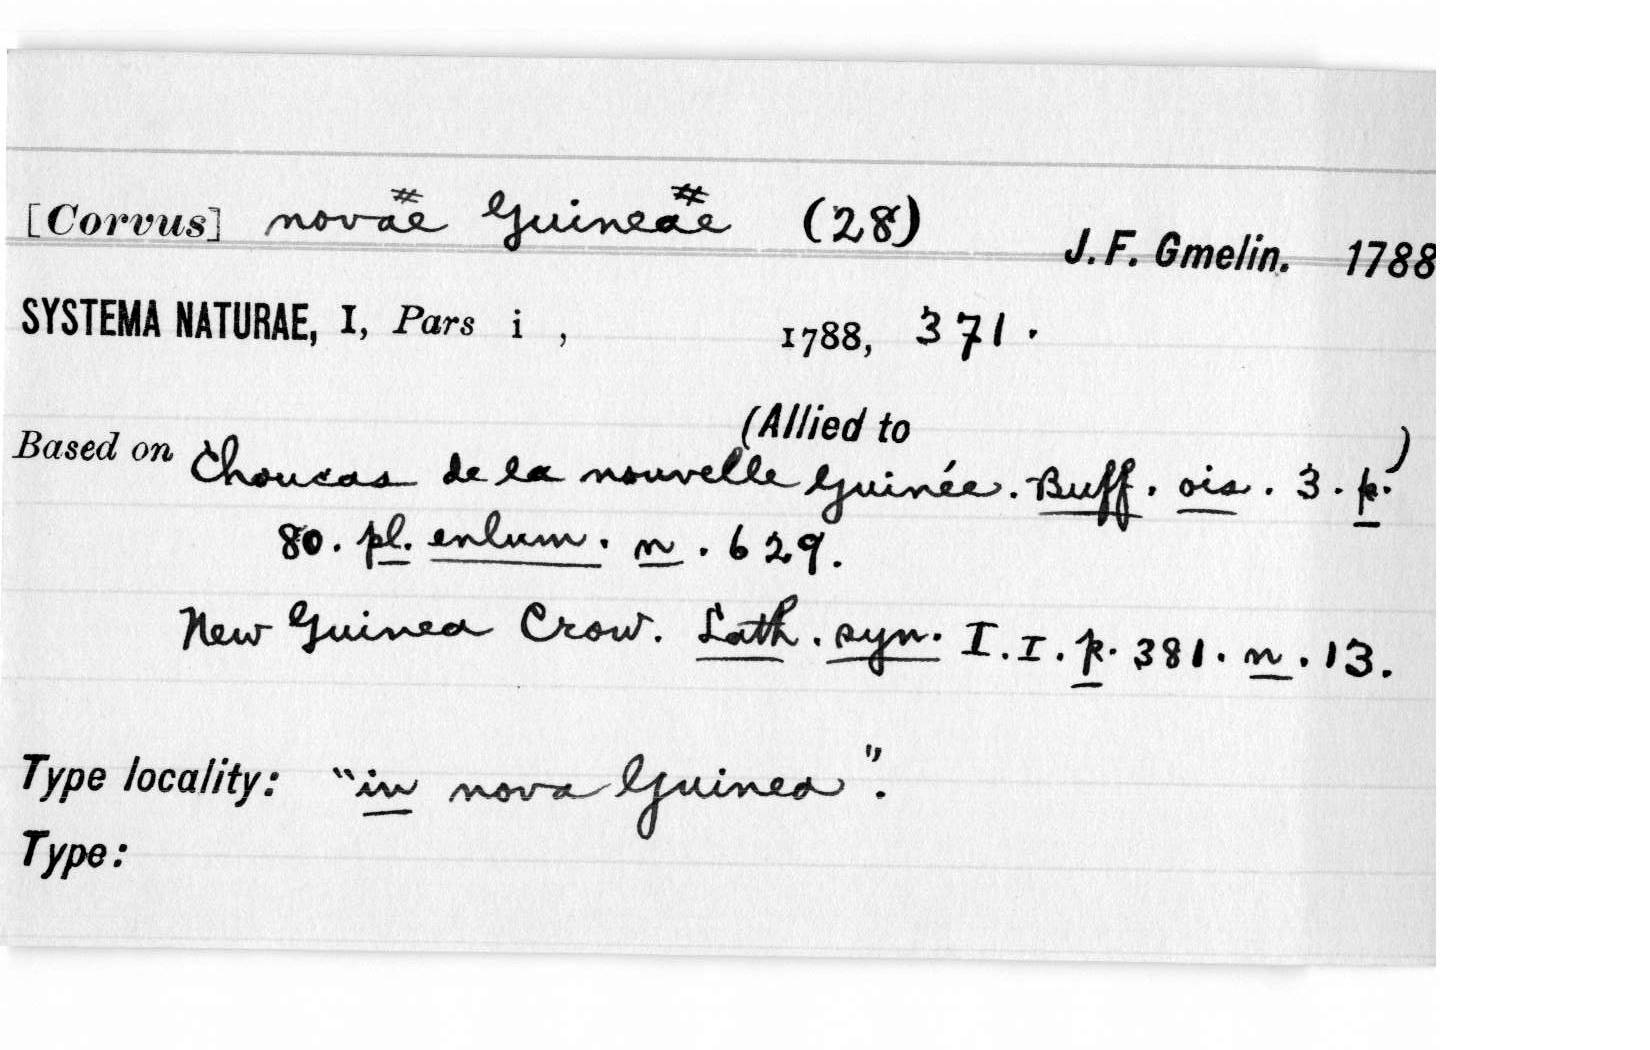 [Corvus] novae Guineae (28)
J. F. Gmelin. 1788
SYSTEMA NATURAE, I, Pars i , 1788, 371.
(Allied to )
Based on Choucas de la nouvelle Guinée. Buff. ois. 3. p.
80. pl. enlum. n. 629.
New Guinea Crow. Lath. syn. I. I. p. 381. n. 13.
Type locality: "in nova Guinea".
Type: